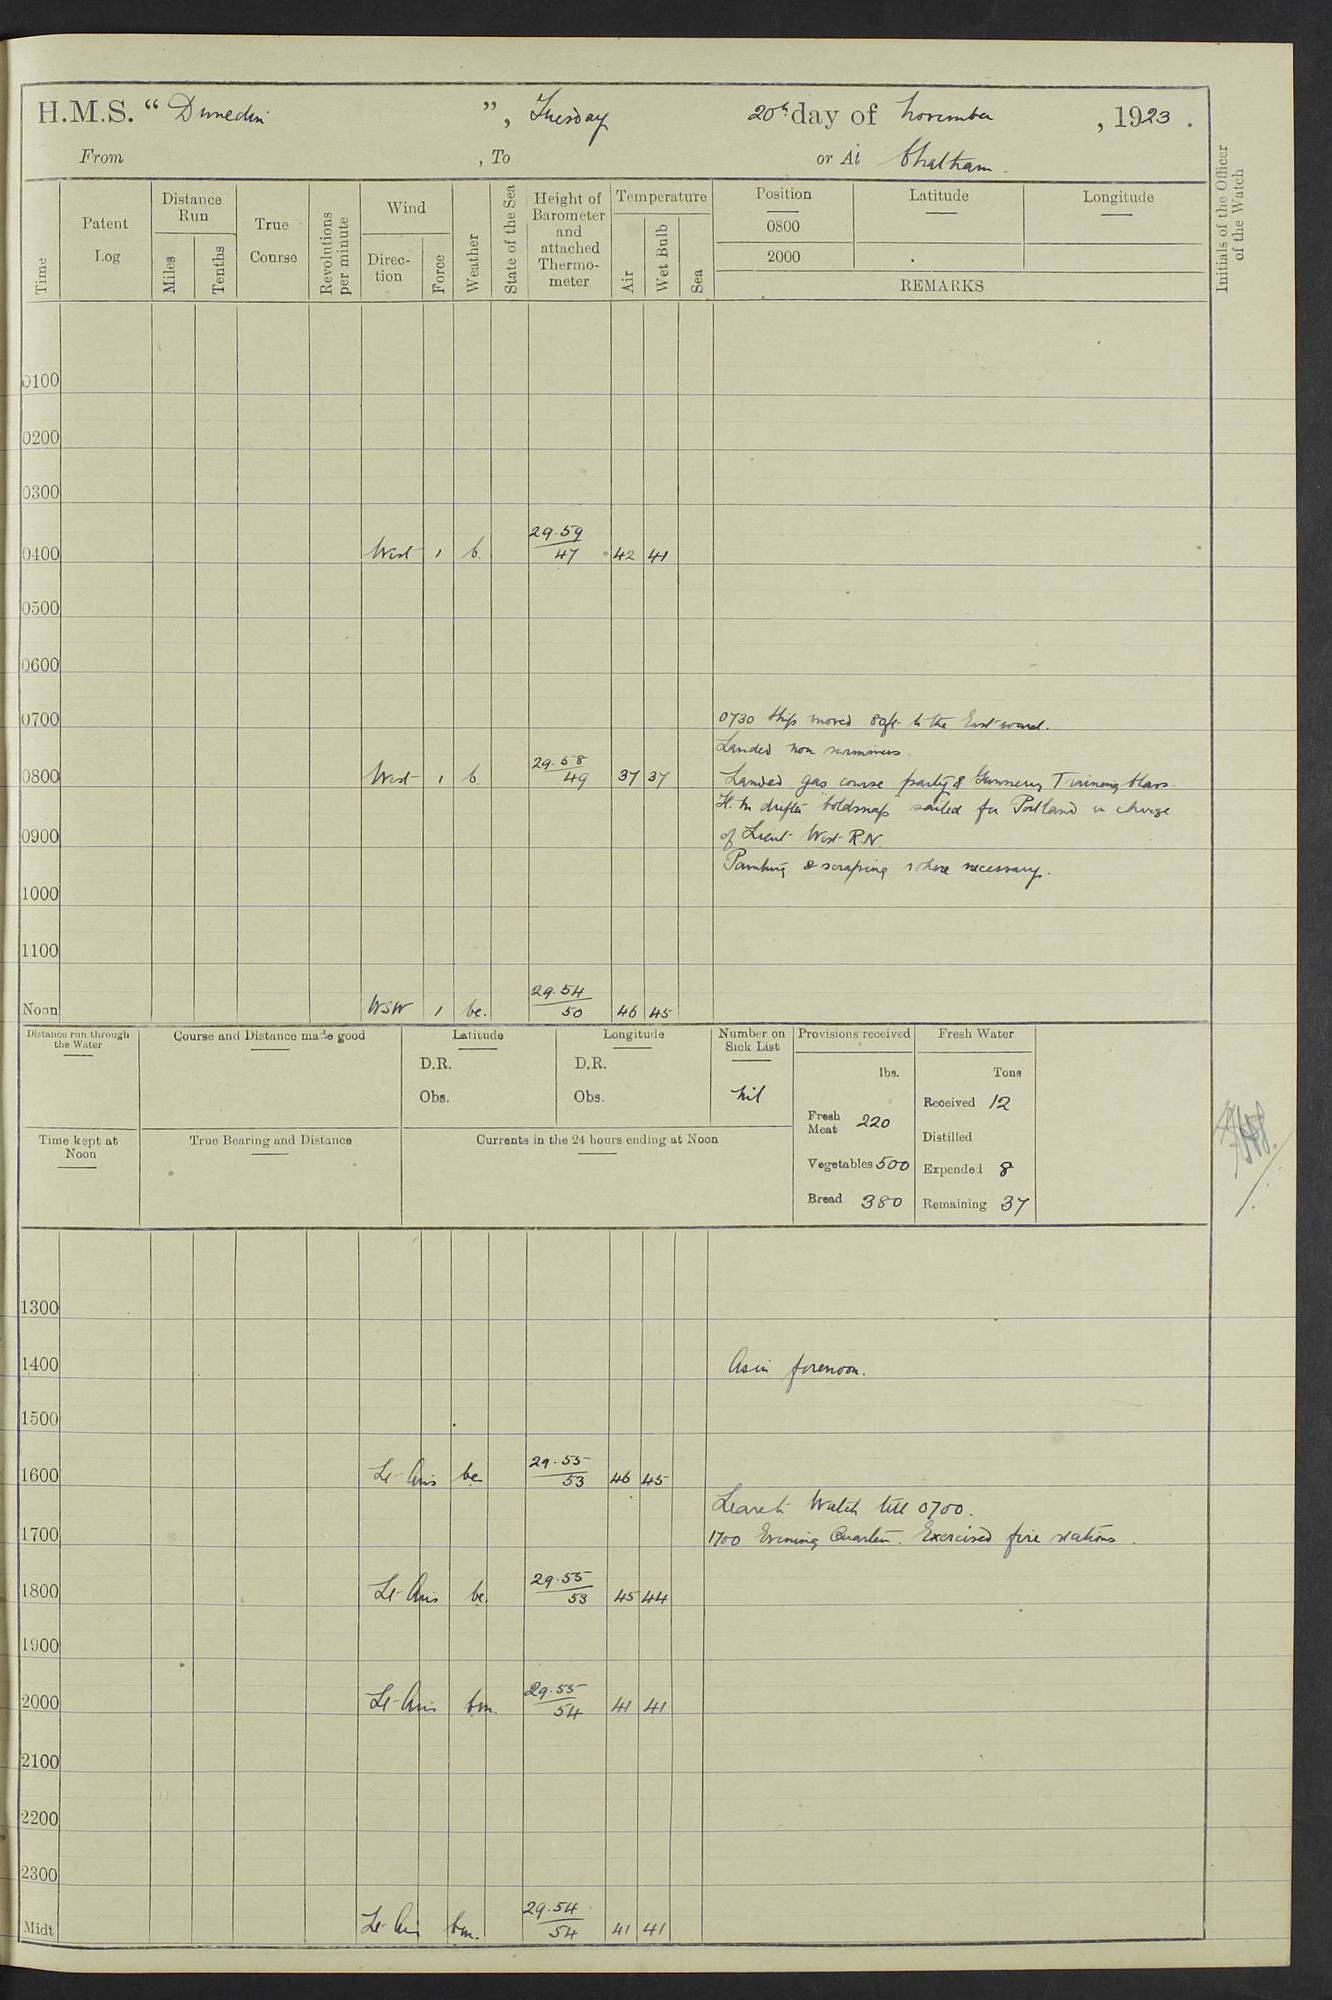 H.M.S. “ Dunedin ”, Tuesday 20th day of November , 1923 .
From , To or At Chatham.
Time
Patent Log
Distance Run
Miles
Tenths
True Course
Revolutions per minute
Wind
Direc-tion
Force
Weather
State of the Sea
Height of Barometer and attached Thermo-meter
Temperature
Air
Wet Bulb
Sea
Position
Latitude
Longitude
0800
2000
REMARKS
Initials of the Officer of the Watch
0100
0200
0300
0400 West 1 b. 29.59 47 42 41
0500
0600
0700 0730 Ship moved 80ft to the Eastward.
Landed non swimmers.
0800 West 1 b 29.58 49 37 37 Landed gas course party & Gunnery Training Class.
H.M drifter "Coldsnap" sailed for Portland in charge
0900 of Lieut West R.N.
Painting & scraping where necessary.
1000
1100
Noon WSW 1 bc. 29.54 50 46 45
Distance run through the Water
Course and Distance made good
Latitude
D.R.
Obs.
Longitude
D.R.
Obs.
Number on Sick List
Nil
Provisions received
lbs.
Fresh Meat 220
Vegetables 500
Bread 380
Fresh Water
Tons
Received 12
Distilled
Expended 8
Remaining 37
Time kept at Noon
True Bearing and Distance
Currents in the 24 hours ending at Noon
1300
1400 As in forenoon.
1500
1600 Lt Airs bc 29.55 53 46 45
Leave to Watch till 0700.
1700 1700 Evening Quarters. Exercised fire stations.
1800 Lt Airs bc. 29.55 53 45 44
1900
2000 Lt Airs bm. 29.55 54 41 41
2100
2200
2300
Midt Lt Air bm. 29.54 54 41 41